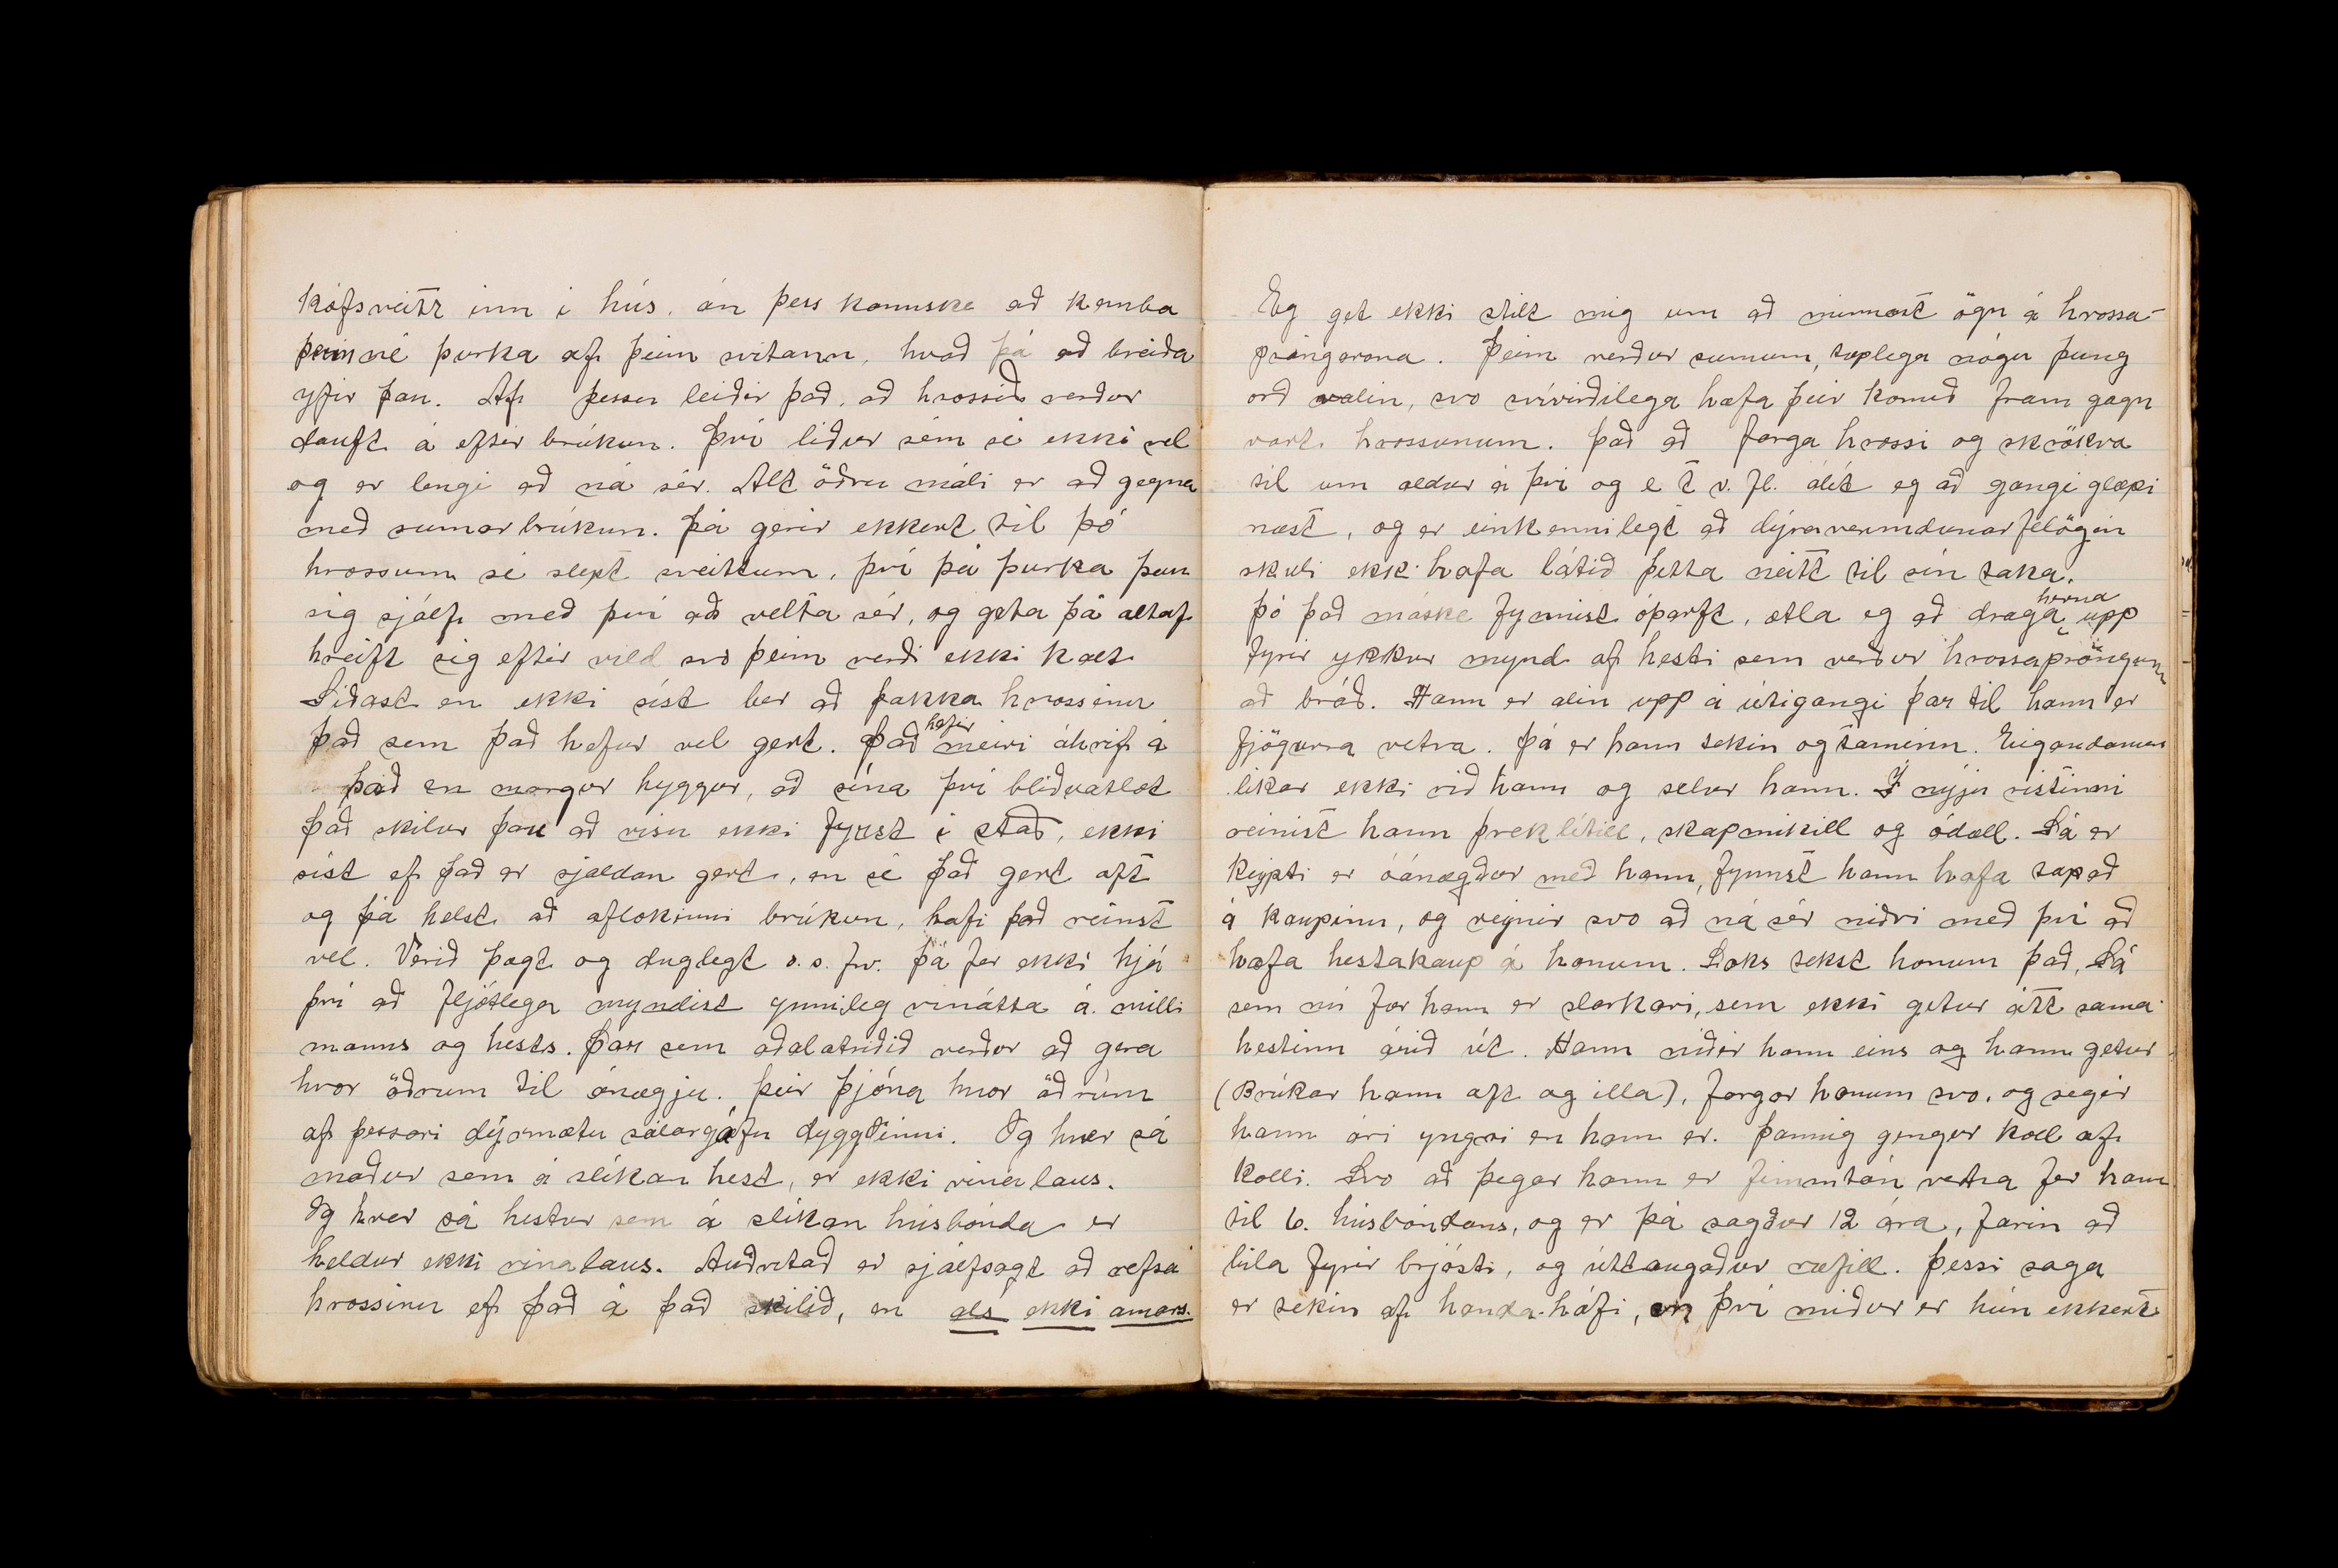 kófsveitt inn í hús, án þess kannske að kemba
þeim né þurka af þeim svitann, hvað þá að breiða
yfir þau. Af þessu leiðir það, að hrossið verður
dauft á eftir brúkun. Því líður sem sé ekki vel
og er lengi að ná sér. Alt öðru máli er að gegna
með sumarbrúkun. Þá gerir ekkert til þó
hrossum sé slept sveittum, því þá þurka þau
sig sjálf með því að velta sér, og geta þá altaf
hreift sig eftir vild svo þeim verði ekki kalt
Síðast en ekki síst ber að þakka hrossinu
það sem það hefur vel gert. Það hefir meiri áhrif á
það en margur hyggur, að sína því blíðuatlot
það skilur þau að vísu ekki fyrst í stað, ekki
síst ef það er sjaldan gert, en sé það gert oft
og þá helst að aflokinni brúkun, hafi það reinst
vel. Verið þægt og duglegt s.s.frv. þá fer ekki hjá
því að fljótlega myndist ynnileg vinátta á milli
manns og hests. Þar sem aðalatriðið verður að gera
hvor öðrum til ánægju. Þeir þjóna hvor öðrum
af þessari dýrmætu sálargáfu dyggðinni. Og hver sá
maður sem á slíkan hest, er ekki vinalaus.
Og hver sá hestur sem á slíkan húsbónda er
heldur ekki vinalaus. Auðvitað er sjálfsagt að refsa
hrossinu ef það á það skilið, en als ekki annars.
Eg get ekki stilt mig um að minnast ögn á hrossa-
prángarana. Þeim verður sumum, tæplega nógu þung
orð valin, svo svívirðilega hafa þeir komið fram gagn
vart hrossunum. Það að farga hrossi og skrökva
til um aldur á því og e t v. fl. álít eg að gangi glæpi
næst, og er einkennilegt að dýraverndunarfélögin
skuli ekki hafa látið þetta neitt til sín taka.
Þó það máske fynnist óþarft, ætla eg að draga hérna upp
fyrir ykkur mynd af hesti sem verður hrossapröngurum
að bráð. Hann er alin upp á útigangi þar til hann er
fjögurra vetra. Þá er hann tekin og taminn. Eigandanum
líkar ekki við hann og selur hann. Í nýju vistinni
reinist hann þreklítill, skapmikill og ódæll. Sá er
keypti er óánægður með hann, fynnst hann hafa tapað
á kaupinu, og reynir svo að ná sér niðri með því að
hafa hestakaup á honum. Loks tekst honum það, Sá
sem nú fær hann er slarkari, sem ekki getur átt sama
hestinn árið út. Hann níðir hann eins og hann getur
(Brúkar hann oft og illa), fargar honum svo, og segir
hann ári yngri en hann er. Þannig gengur koll af
kolli. Svo að þegar hann er fimmtán vetra fer hann
til 6. húsbóndans, og er þá sagður 12 ára, farin að
bila fyrir brjósti, og úttaugaður ræfill. Þessi saga
er tekin af handa-hófi, en því miður er hún ekkert